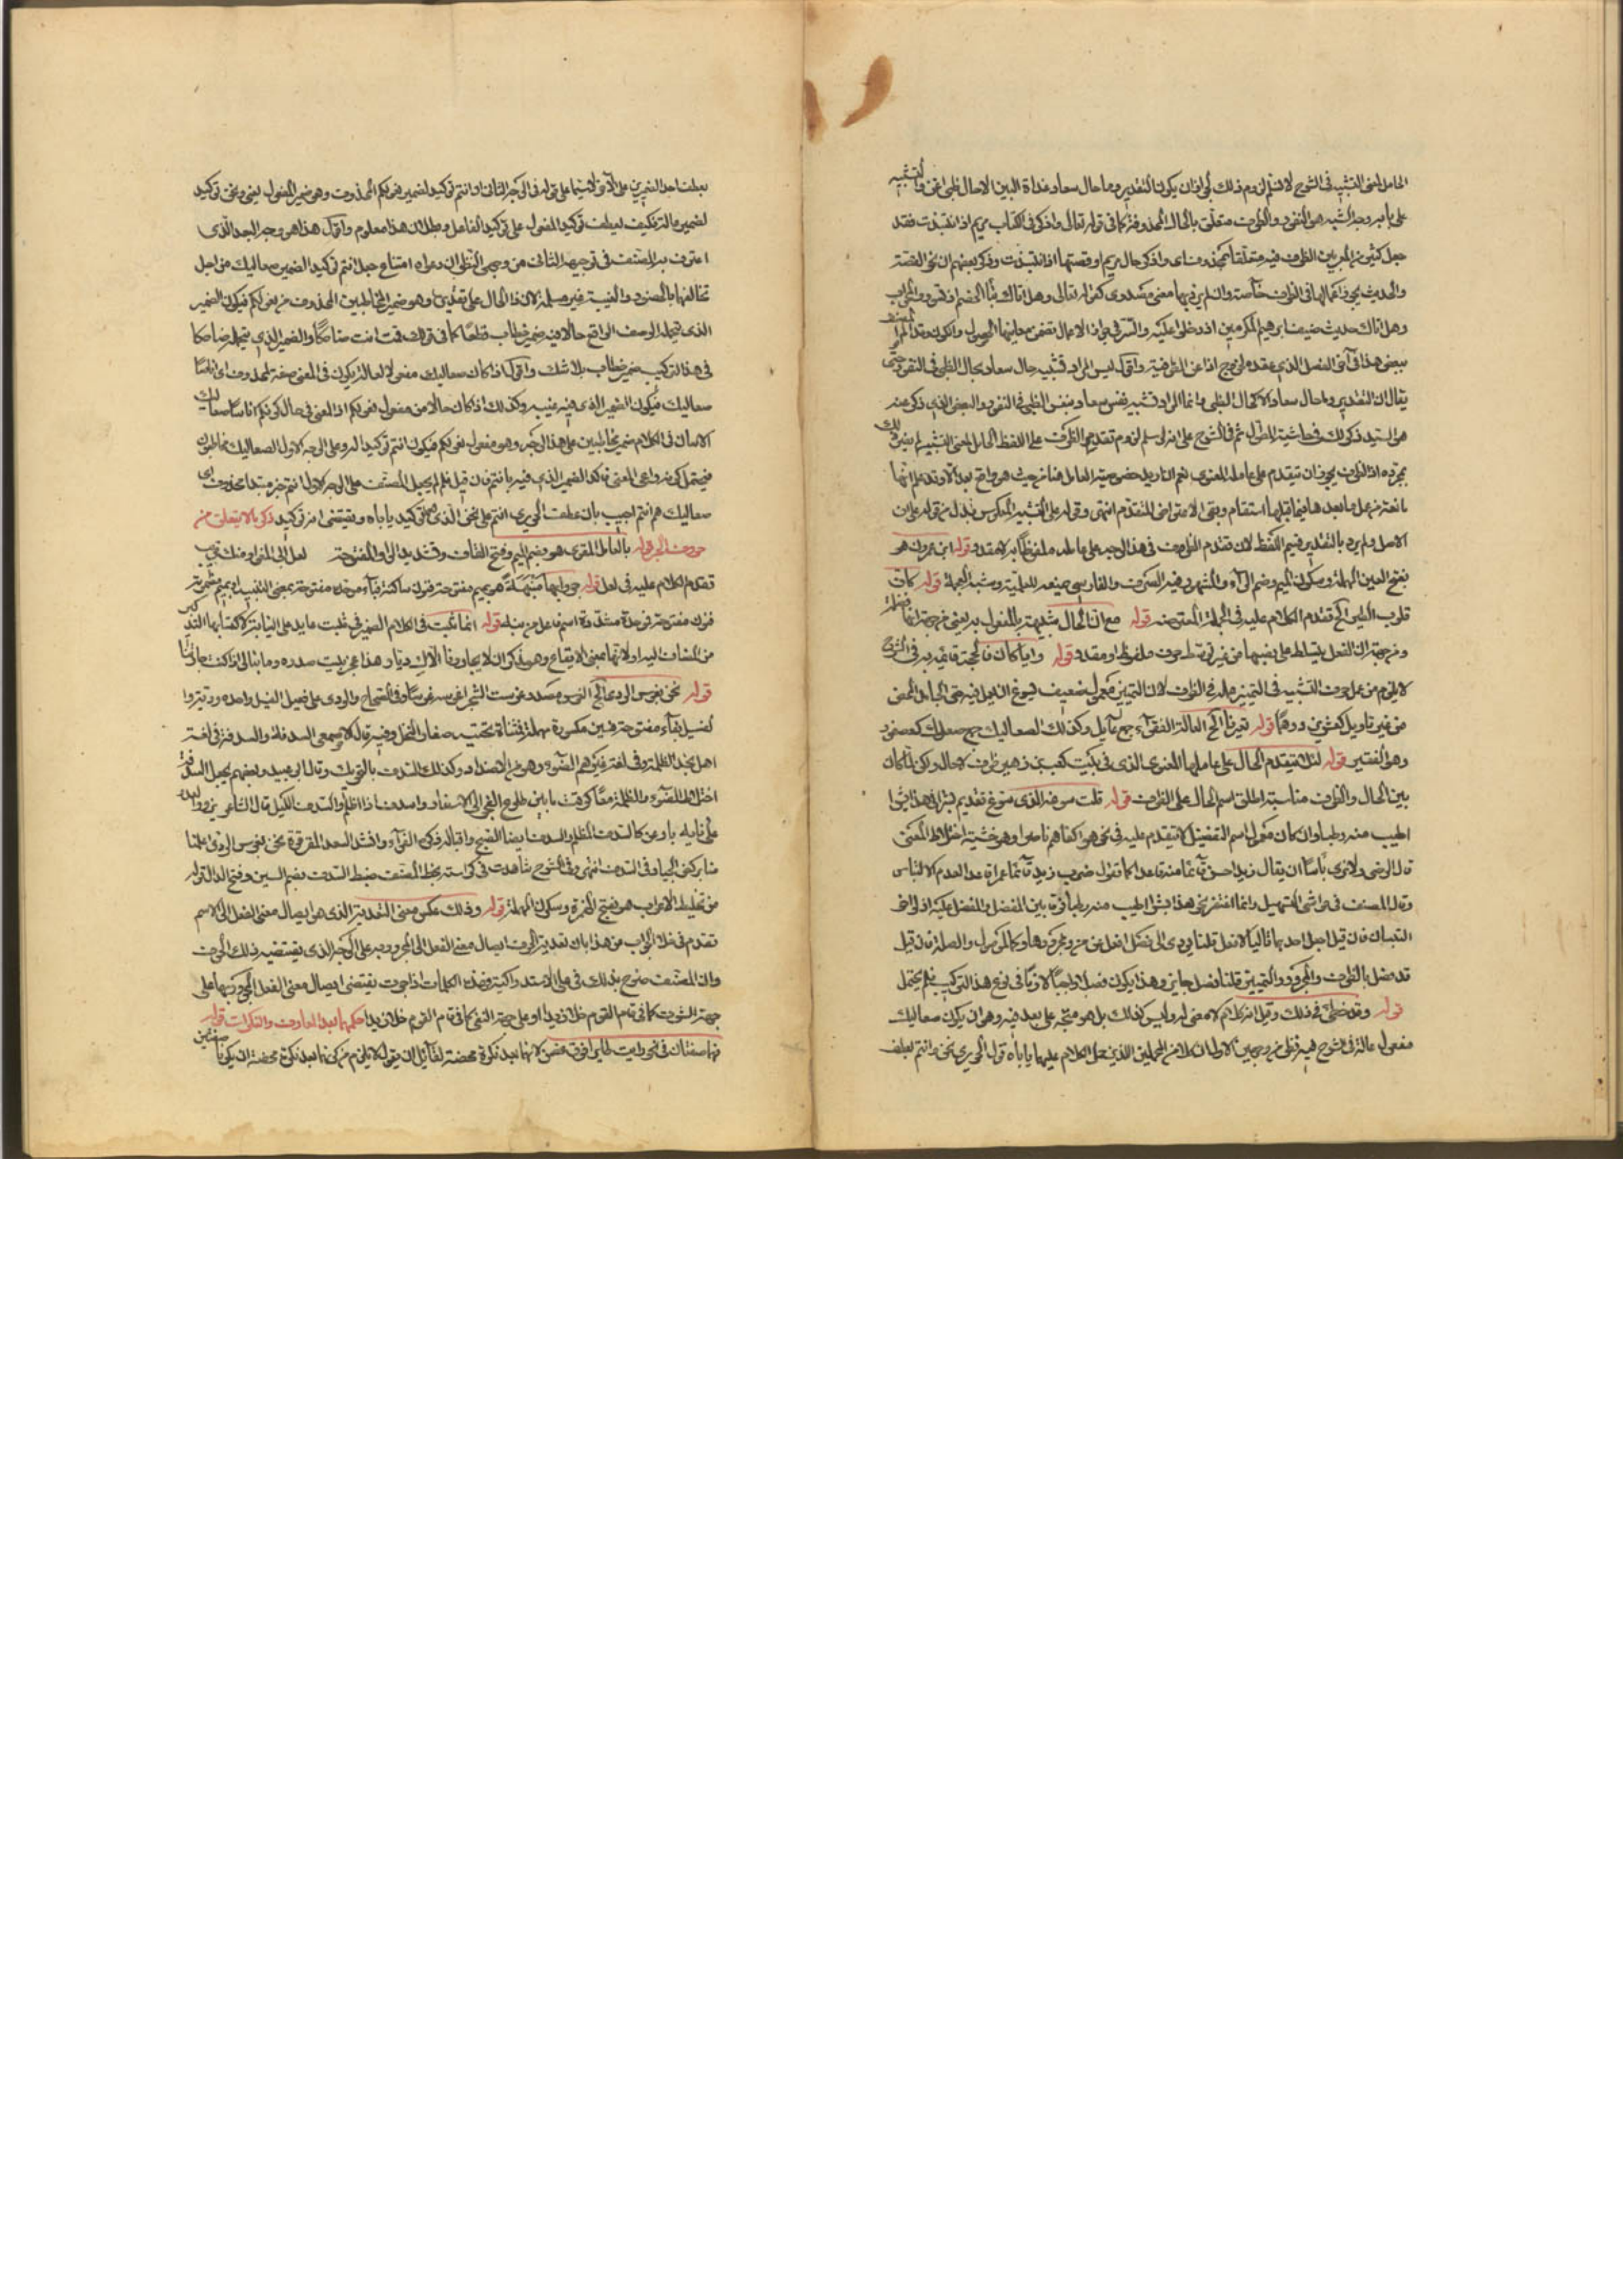 الحامل لمعنى التشبيه في الشرح لا نسلم لزوم ذلك لجواز ان يكون التقدير وما حال سعاد غداة البين الا حال ظبي اغن والتشبيه
وجه الشبه هو النفور والظرف متعلق بالحال المحذوفة كما في قوله تعالى واذكر في الكتاب مريم اذ انتبذت فقد
جعل كثير من المعربين الظرف فيه متعلقا بمحذوف اي واذكر حال مريم او قصتها اذ انتبذت وذكر بعضهم ان نحو القصة
والحديث يجوز اعمالها في الظرف خاصة وان لم يرد بها معنى مصدري كقوله تعالى وهل اتاك نبأ الخصم اذ تسوروا المحراب
وهل اتاك حديث ضيف ابرهيم المكرمين اذ دخلوا عليه والسر في جواز الاعمال تضمن معانيها الحصول والكون وقد المصنف
ببعض هذا في آخر الفصل الذي عقده لخروج اذا عن الشرطية واقول ليس المراد تشبيه حال سعاد بحال الظبي في النفور حتى
يقال ان التقدير وما حال سعاد الا كحال الظبي وانما المراد تشبيه نفس سعاد بنفس الظبي في النفور والمعنى الذي ذكره
هو السيد ذكر ذلك في حاشية المطول ثم في الشرح على انه لو سلم لزوم تقدم الظرف على اللفظ الحامل لمعنى التشبيه لم يضر ذلك
بمجرده اذ الظرف يجوز ان يتقدم على عامله المعنوي نعم ان اريد خصوصية العامل هنا من حيث هو واقع بعد الا وقد علم انها
مانعة من عمل ما بعدها فيما قبلها استقام وبقي الاعتراض المتقدم انتهى وقوله على التشبيه المعكوس بدل من قوله على ان
الاصل ولم يرد بالتقدير فيم اللفظ لان تقدم الظرف في هذا الوجه على عامله ملفوظا به لا مقدر قوله ابن عمرون هو
بفتح العين المهملة وسكون الميم وضم الراء والمشهور فيه الصرف والفارسي يمنعه للعلمية وشبه العجمة قوله كان
قلوب الطير الخ تقدم الكلام عليه في الجملة المعترضة قوله مع ان الحال شبيهة بالمفعول به يعني من جهة انها فضلة
ومن جهة ان الفعل يتسلط على نصبها من غير توسط حرف ملفوظ او مقدر قوله وايا كان فالحجة قائمة به في الشرح
لا يلزم من عمل حرف التشبيه في التمييز عمله في الظرف لان التمييز معمول ضعيف يسوغ ان يعمل فيه حتى الجامد المحض
من غير تأويل كعشرين درهما قوله تعيرنا الخ العالة الفقراء جمع عايل وكذلك الصعاليك جمع صعلوك كعصفور
وهو الفقير قوله لئلا يتقدم الحال على عاملها المعنوي الذي في بيت كعب بن زهير ظرف لا حال ولكن لما كان
بين الحال والظرف مناسبة اطلق اسم الحال على الظرف قوله قلت سوغه الذي سوغ تقديم بسرا في هذا بسرا
اطيب منه رطبا وان كان معمول اسم التفضيل لا يتقدم عليه في نحو هو اكفاهم ناصرا وهو خشية اختلاط المعنى
قال الرضي ولا نرى بأسا ان يقال زيد احسن قائما منه قاعدا كما تقول ضرب زيد قائما عمرا قاعدا لعدم الالتباس
وقال المصنف في حواشي التسهيل وانما اغتفر نحو هذا بسرا اطيب منه رطبا فرقا بين المفضل والمفضل عليه اذ لو اخر
التبسا فان قيل اجعل احدهما تاليا لافعل قلنا يودي الى فصل افعل من من ومجرورها وهما كالموصول والصلة فان قيل
قد فصل بالظرف والمجرور والتمييز قلنا فصل جايز وهذا يكون فصلا واجبا لازما في نوع هذا التركيب فلم يحتمل
قوله وقد خطئ في ذلك وقيل انه كلام لا معنى له وليس كذلك بل هو متجه على بعد فيه وهو ان يكون صعاليك
مفعول عالة في الشرح فيه نظر من وجهين الاول ان كلا من المحملين الذين حمل الكلام عليهما ياباه قول الحريري نحن وانتم بعطف
بعطف احد الضميرين على الاخر لا سيما على قوله في الوجه الثاني ان انتم توكيد لضمير نعولكم المحذوف وهو ضمير المفعول يعني ونحن توكيد
لضمير عالة فكيف يعطف توكيد المفعول على توكيد الفاعل وبطلان هذا معلوم واقول هذا هو وجه البعد الذي
اعترف به المصنف في توجيهه الثاني من وجهي النظر ان دعواه امتناع جعل انتم توكيد الضمير صعاليك من اجل
تخالفهما بالحضور والغيبة غير مسلمة لان ذا الحال على تقديره هو ضمير المخاطبين المحذوف من نعولكم فيكون الضمير
الذي تحمله الوصف الواقع حالا فيه ضمير خطاب قطعا كما في قولك قمت انت ضاحكا والضمير الذي يتحمله ضاحكا
في هذا التركيب ضمير خطاب بلا شك واقول اذا كان صعاليك مفعولا لعالة يكون في المعنى صفة لمحذوف اي اناسا
صعاليك فيكون الضمير الذي فيه غيبة وكذلك اذا كان حالا من مفعول نعولكم اذ المعنى في حال كونكم اناسا صعاليك
الا ان في الكلام ضمير مخاطبين على هذا الوجه وهو مفعول نعولكم فيكون انتم توكيدا له وعلى الوجه الاول الصعاليك مخاطبون
فيحتمل كونه راعى المعنى فاكد الضمير الذي فيه بانتم فان قيل فلم لم يجعل المصنف على الوجه الاول انتم خبر مبتدا محذوف اي
صعاليك هم انتم اجيب بان عطف الحريري انتم على نحن الذي هو توكيد ياباه ويقتضي انه توكيد ذكر ما لا يتعلق من
حروف الجر قوله بالعامل المقوى هو بضم الميم وفتح القاف وتشديد الواو المفتوحة لعل ابي المغوار منك قريب
تقدم الكلام عليه في لعل قوله جوابها منبهلة هو بميم مضمومة فنون ساكنة فباء موحدة مفتوحة
من المضاف اليه اولا انها بمعنى الايقاع وهو مذكر ان لا يجاورنا الاك ديار هذا عجز بيت صدره وما نبالي اذا ما كنت جارتنا
قوله نحن بغرس الودي الخ الغرس مصدر غرست الشجر اغرسه غرسا وفي الصحاح والودي على فعيل الفسيل واحده ودية
الفسيل بفاء مفتوحة فسين مكسورة مهملة فمثناة تحتية صغار النخل وفيه قال الاصمعي السدفة والسدفة في لغة
اهل نجد الظلمة وفي لغة غيرهم الضوء وهو من الاضداد وكذلك السدف بالتحريك وقال ابو عبيد وبعضهم يجعل السدفة
اختلاط الضوء والظلمة معا كوقت ما بين طلوع الفجر الى الاسفار واسدف
منا بركض الجياد في السدف انتهى وفي الشرح شاهدت في كراسة بخط المصنف ضبط السدف بضم السين وفتح الدال قوله
من تخليط الاعراب هو بفتح الهمزة وسكون المهملة قوله وذلك عكس معنى التعدية الذي هو ايصال معنى الفعل الى الاسم
تقدم في خلا الجواب عن هذا بان تعدية الحرف ايصال معنى الفعل الى المجرور به على الوجه الذي يقتضيه ذلك الحرف
وان المصنف صرح بذلك في
جهة الثبوت كما في قام القوم خلا زيدا او على جهة النفي كما في قام القوم خلا زيدا حكمهما بعد المعارف والنكرات قوله
فهما صفتان في نحو رايت طايرا فوق غصن لانهما بعد نكرة محضة لقائل ان يقول لا يلزم من كونهما بعد نكرة محضة ان يكونا صفتين